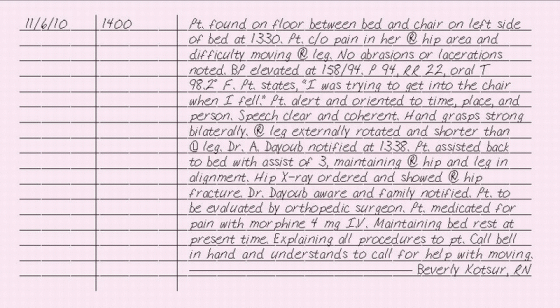 11/6/10 1400 Pt. found on floor between bed and chair on left side
of bed at 1330. Pt. c/o pain in her Ⓡ hip area and
difficulty moving Ⓡ leg. No abrasions or lacerations
noted. BP elevated at 158/94. P 94, RR 22, oral T
98.2° F. Pt. states, "I was trying to get into the chair
when I fell." Pt. alert and oriented to time, place, and
person. Speech clear and coherent. Hand grasps strong
bilaterally. Ⓡ leg externally rotated and shorter than
Ⓛ leg. Dr. A. Dayoub notified at 1338. Pt. assisted back
to bed with assist of 3, maintaining Ⓡ hip and leg in
alignment. Hip X-ray ordered and showed Ⓡ hip
fracture. Dr. Dayoub aware and family notified. Pt. to
be evaluated by orthopedic surgeon. Pt. medicated for
pain with morphine 4 mg I.V. Maintaining bed rest at
present time. Explaining all procedures to pt. Call bell
in hand and understands to call for help with moving.
Beverly Kotsur, RN